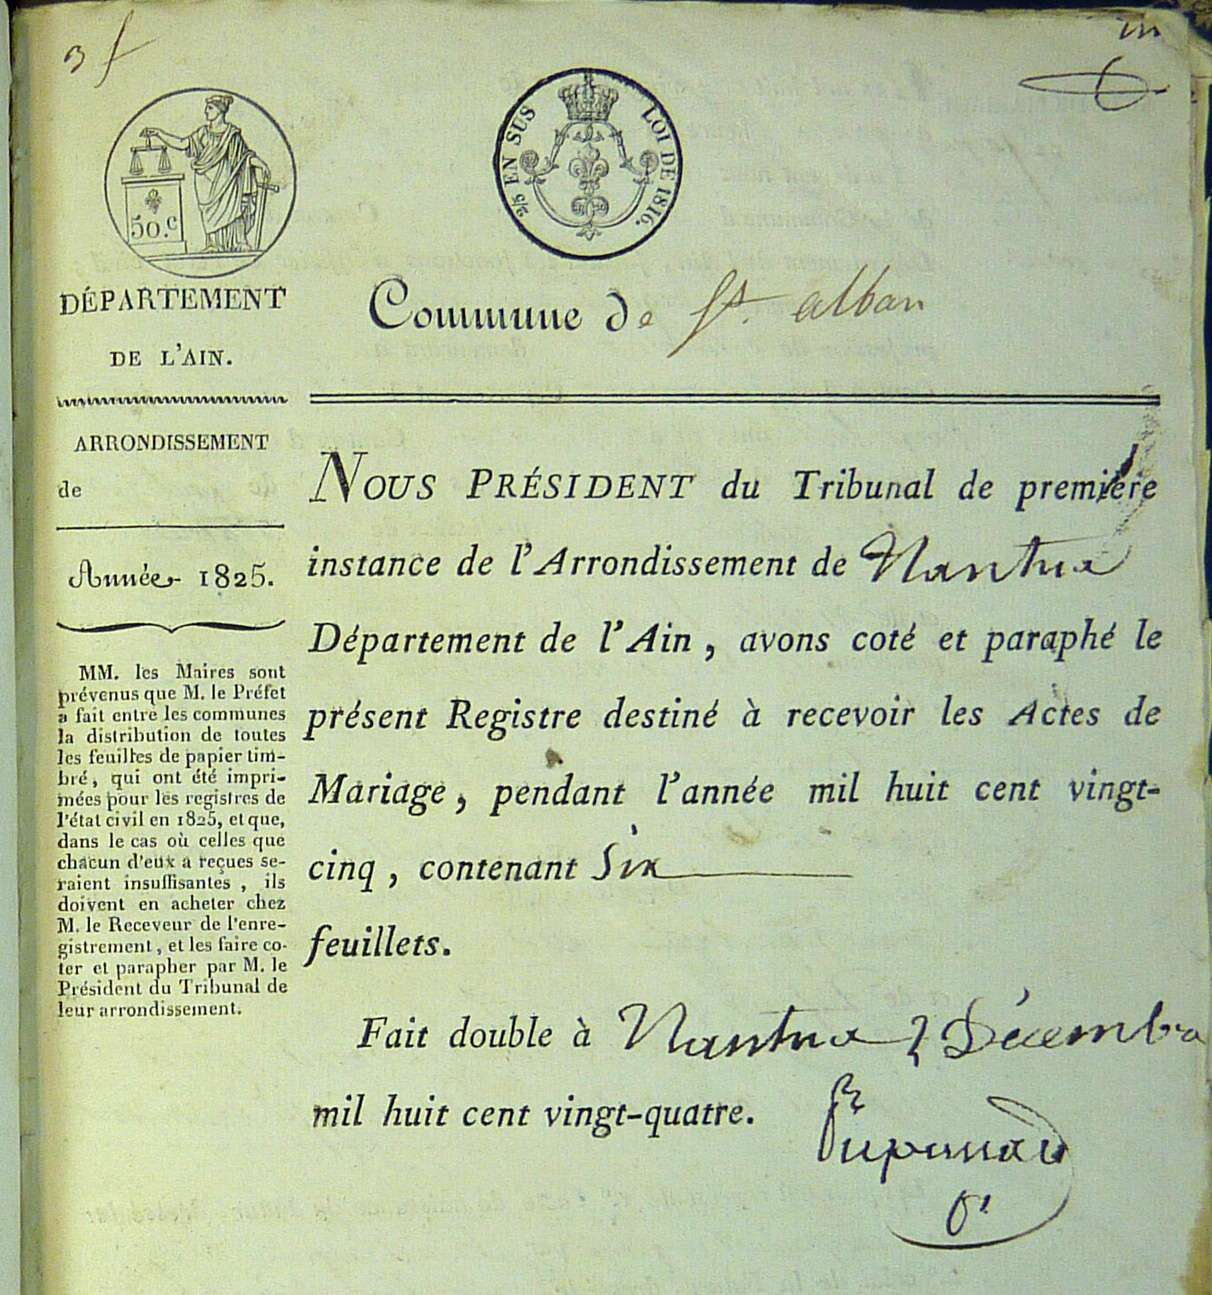 3 f
50.c
2/5 EN SUS LOI DE 1816.
DÉPARTEMENT
DE L'AIN.
Commune de St. alban
ARRONDISSEMENT
de
Année 1825.
MM. les Maires sont
prévenus que M. le Préfet
a fait entre les communes
la distribution de toutes
les feuilles de papier tim-
bré, qui ont été impri-
mées pour les registres de
l'état civil en 1825, et que,
dans le cas où celles que
chacun d'eux a reçues se-
raient insuffisantes, ils
doivent en acheter chez
M. le Receveur de l'enre-
gistrement, et les faire co-
ter et parapher par M. le
Président du Tribunal de
leur arrondissement.
NOUS PRÉSIDENT du Tribunal de première
instance de l'Arrondissement de Nantua
Département de l'Ain, avons coté et paraphé le
présent Registre destiné à recevoir les Actes de
Mariage, pendant l'année mil huit cent vingt-
cinq, contenant Six
feuillets.
Fait double à Nantua 2 Décembre
mil huit cent vingt-quatre.